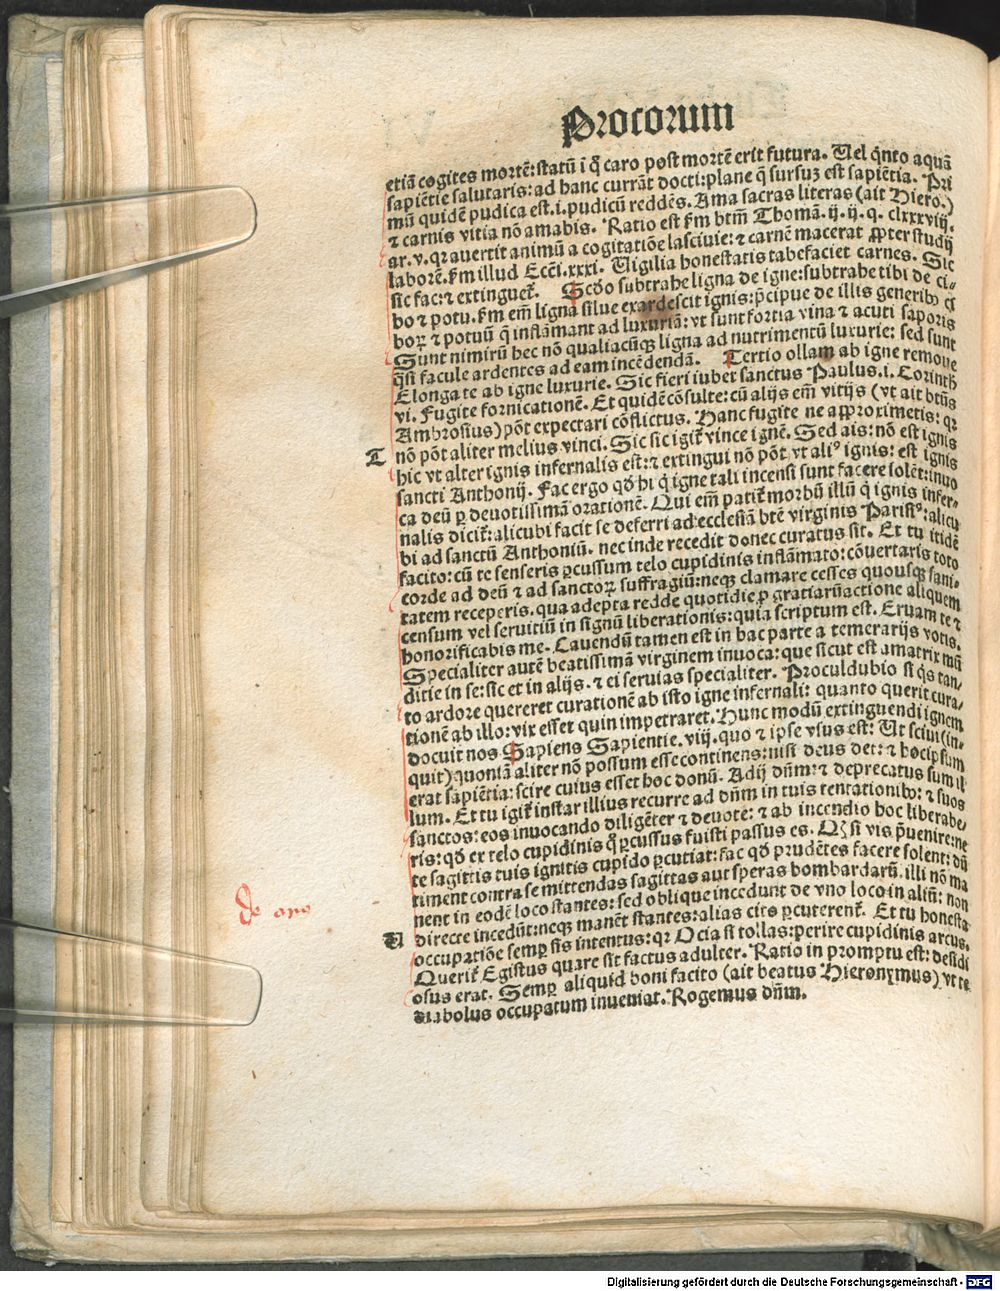 Procorum
etiā cogites mortē: statū ī q̄ caro post mortē erit futura. Vel q̄nto aquā
sapiētie salutaris: ad hanc currāt docti: plane q̄ sursuʒ est sapiētia. Pri
mū quidē pudica est .i. pudicū reddēs. Ama sacras literas (ait Hiero.)
⁊ carnis vitia nō amabis. Ratio est ẜm btm̄ Thomā. ij. ij. q. clxxxviij.
ar. v. qꝛ auertit animū a cogitatiōe lasciuie: ⁊ carnē macerat ꝓpter studij
laborē. ẜm illud Ecc̄i. xxxi. Vigilia honestatis tabefaciet carnes. Sic
sic fac: ⁊ extinguet̄. Scd̄o subtrahe ligna de igne: subtrahe tibi de ci-
bo ⁊ potu. ẜm em̄ ligna silue exardescit ignis: p̄cipue de illis generibꝰ ci
boꝝ ⁊ potuū q̄ inflāmant ad luxuriā: vt sunt fortia vina ⁊ acuti saporis
Sunt nimirū hec nō qualiacūqꝫ ligna ad nutrimentū luxurie: sed sunt
q̄si facule ardentes ad eam incēdendā. Tertio ollam ab igne remoue
Elonga te ab igne luxurie. Sic fieri iubet sanctus Paulus .i. Corinth
vi. Fugite fornicationē. Et quidē cōsulte: cū alijs em̄ vitijs (vt ait btūs
Ambrosius) pōt expectari cōflictus. Hanc fugite ne approximetis: qꝛ
T nō pōt aliter melius vinci. Sic sic igit̄ vince ignē. Sed ais: nō est ignis
hic vt alter ignis infernalis est: ⁊ extingui nō pōt vt aliꝰ ignis: est ignis
sancti Anthonij. Fac ergo qd̄ hi q̄ igne tali incensi sunt facere solēt: inuo
ca deū ꝑ deuotissimā orationē. Qui em̄ patit̄ morbū illū q̄ ignis infer-
nalis dicit̄: alicubi facit se deferri ad ecclesiā btē virginis Parisiꝰ: alicu
bi ad sanctū Anthoniū. nec inde recedit donec curatus sit. Et tu itidē
facito: cū te senseris ꝑcussum telo cupidinis inflāmato: cōuertaris toto
corde ad deū ⁊ ad sanctoꝝ suffragiū: neqꝫ clamare cesses quousqꝫ sani-
tatem receperis. qua adepta redde quotidie ꝓ gratiarūactione aliquem
censum vel seruitiū in signū liberationis: quia scriptum est. Eruam te ⁊
honorificabis me. Cauendū tamen est in hac parte a temerarijs votis.
Specialiter autē beatissimā virginem inuoca: que sicut est amatrix mū
ditie in se: sic et in alijs. ⁊ ei seruias specialiter. Proculdubio si q̄s tan-
to ardore quereret curationē ab isto igne infernali: quanto querit cura-
tionē ab illo: vix esset quin impetraret. Hunc modū extinguendi ignem
docuit nos Sapiens Sapientie. viij. quo ⁊ ipse vsus est: Vt sciui (in-
quit) quoniā aliter nō possum esse continens: nisi deus det: ⁊ hoc ipsum
erat sapiētia: scire cuius esset hoc donū. Adij dn̄m: ⁊ deprecatus sum il
lum. Et tu igit̄ instar illius recurre ad dn̄m in tuis tentationibꝰ: ⁊ suos
sanctos: eos inuocando diligēter ⁊ deuote: ⁊ ab incendio hoc liberabe-
ris: qd̄ ex telo cupidinis q̄ ꝑcussus fuisti passus es. Qꝫ si vis p̄uenire: ne
te sagittis tuis ignitis cupido ꝑcutiat: fac qd̄ prudētes facere solent: dū
timent contra se mittendas sagittas aut speras bombardarū. illi nō ma
nent in eodē loco stantes: sed oblique incedunt de vno loco in aliū: non
V directe incedūt: neqꝫ manēt stantes: alias cito ꝑcuterent̄. Et tu honesta
occupatiōe semꝑ sis intentus: qꝛ Ocia si tollas: periere cupidinis arcus.
Querit̄ Egistus quare sit factus adulter. Ratio in promptu est: desidi
osus erat. Semꝑ aliquid boni facito (ait beatus Hieronymus) vt te
diabolus occupatum inueniat. Rogemus dn̄m.
Digitalisierung gefördert durch die Deutsche Forschungsgemeinschaft - DFG